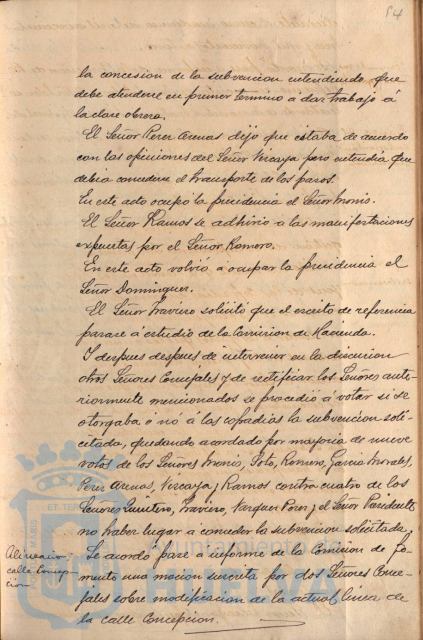 54
la concesion de la subvencion entendiendo que
debe atenderse en primer termino á dar trabajo á
la clase obrera.
El Señor Perez Armas dijo que estaba de acuerdo
con las opiniones del Señor Vizcaya pero entendia que
debia concederse el transporte de los pasos.
En este acto ocupó la presidencia el Señor
El Señor Ramos se adhirio á las manifestaciones
expuestas por el Señor Romero.
En este acto volvió á ocupar la presidencia el
Señor Dominguez.
El Señor Travieso solicitó que el escrito de referencia
pasase á estudio de la Comision de Hacienda.
Y despues despues de intervenir en la discusion
otros Señores Concejales y de rectificar los Señores ante-
riormente mencionados se procedió á votar si se
otorgaba ó nó á las cofradias la subvencion soli-
citada, quedando acordado por mayoria de nueve
votos de los Señores Soto, Romero, Garcia Morales,
Perez Armas, Vizcaya y Ramos contra cuatro de los
Señores Quintero, Travieso, Vazquez Perez y el Señor Presidente
no haber lugar á conceder la subvencion solicitada.
Alineacion
calle Concep-
cion
Se acordó pase á informe de la Comision de Fo-
mento una mocion suscrita por dos Señores Conce-
jales sobre modificacion de la actual linea de
la calle Concepcion.